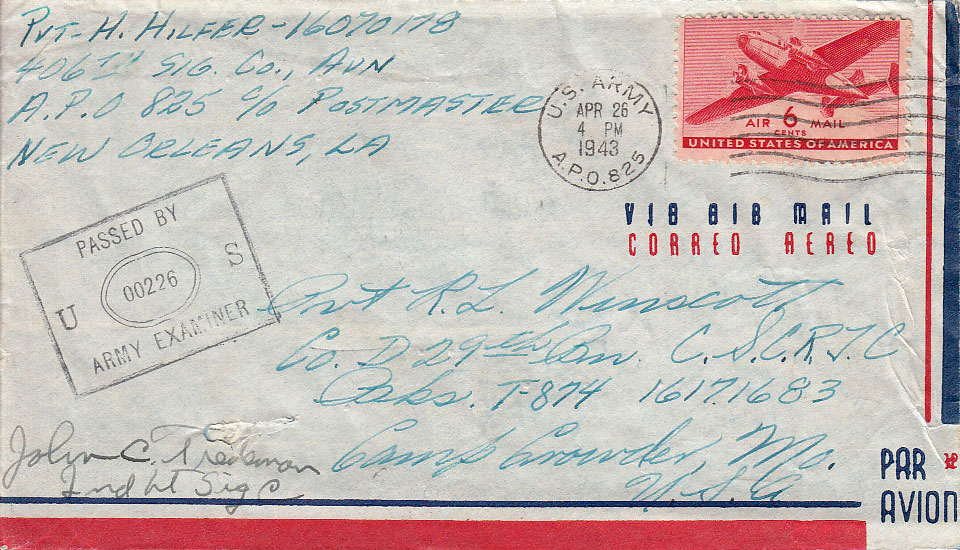 PVT-H. HILFER-16070178
406TH SIG. CO., AVN
A.P.O 825 c/o POSTMASTER
NEW ORLEANS, LA
U.S. ARMY
APR 26
4 PM
1943
A.P.O. 825
AIR 6 MAIL
CENTS
UNITED STATES OF AMERICA
VIA AIR MAIL
CORREO AEREO
PASSED BY
U 00226 S
ARMY EXAMINER
Pvt R.L. Winscott
Co. D 29th Bn. C.S.C.R.T.C
T-874 16171683
Camp Crowder, Mo.
U.S.A
John C.
2nd Lt Sig C
PAR
AVION